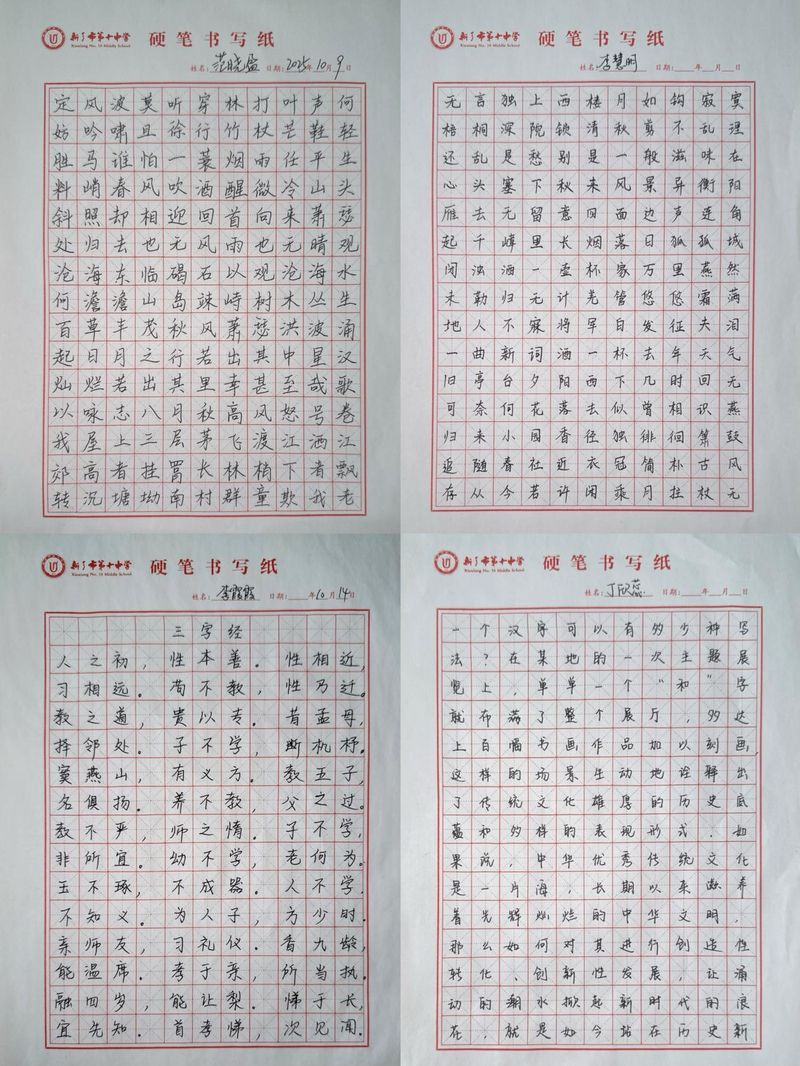 新乡市第十中学 硬笔书写纸
Xinxiang No. 10 Middle School
姓名：范晓盈 日期：2025年10月9日
定风波莫听穿林打叶声何
妨吟啸且徐行竹杖芒鞋轻
胜马谁怕一蓑烟雨任平生
料峭春风吹酒醒微冷山头
斜照却相迎回首向来萧瑟
处归去也无风雨也无晴观
沧海东临碣石以观沧海水
何澹澹山岛竦峙树木丛生
百草丰茂秋风萧瑟洪波涌
起日月之行若出其中星汉
灿烂若出其里幸甚至哉歌
以咏志八月秋高风怒号卷
我屋上三层茅飞渡江洒江
郊高者挂罥长林梢下者飘
转沉塘坳南村群童欺我老
新乡市第十中学 硬笔书写纸
Xinxiang No. 10 Middle School
姓名：李慧明 日期：年月日
无言独上西楼月如钩寂寞
梧桐深院锁清秋剪不乱理
还乱是愁别是一般滋味在
心头塞下秋来风景异衡阳
雁去无留意四面边声连角
起千嶂里长烟落日孤孤城
闭浊酒一壶杯家万里燕然
未勒归无计羌管悠悠霜满
地人不寐将军白发征夫泪
一曲新词酒一杯去年天气
旧亭台夕阳西下几时回无
可奈何花落去似曾相识燕
归来小园香径独徘徊箫鼓
追随春社近衣冠简朴古风
存从今若许闲乘月拄杖无
新乡市第十中学 硬笔书写纸
Xinxiang No. 10 Middle School
姓名：李霞霞 日期：年10月14日
三字经
人之初，性本善．性相近，
习相远．苟不教，性乃迁．
教之道，贵以专．昔孟母，
择邻处．子不学，断机杼．
窦燕山，有义方．教五子，
名俱扬．养不教，父之过．
教不严，师之惰．子不学，
非所宜．幼不学，老何为．
玉不琢，不成器．人不学．
不知义．为人子，方少时．
亲师友，习礼仪．香九龄，
能温席．孝于亲，所当执．
融四岁，能让梨．悌于长，
宜先知．首孝悌，次见闻．
新乡市第十中学 硬笔书写纸
Xinxiang No. 10 Middle School
姓名：丁欣蕊 日期：年月日
一个汉字可以有多少种写
法？在某地的一次主题展
览上，单单一个“和”字
就布满了整个展厅，多达
上百幅书画作品加以刻画，
这样的场景生动地诠释出
了传统文化雄厚的历史底
蕴和多样的表现形式．如
果说，中华优秀传统文化
是一片海，长期以来滋养
着先辉灿烂的中华文明，
那么如何对其进行创造性
转化、创新性发展，让涌
动的潮水掀起新时代的浪
花，就是如今站在历史新